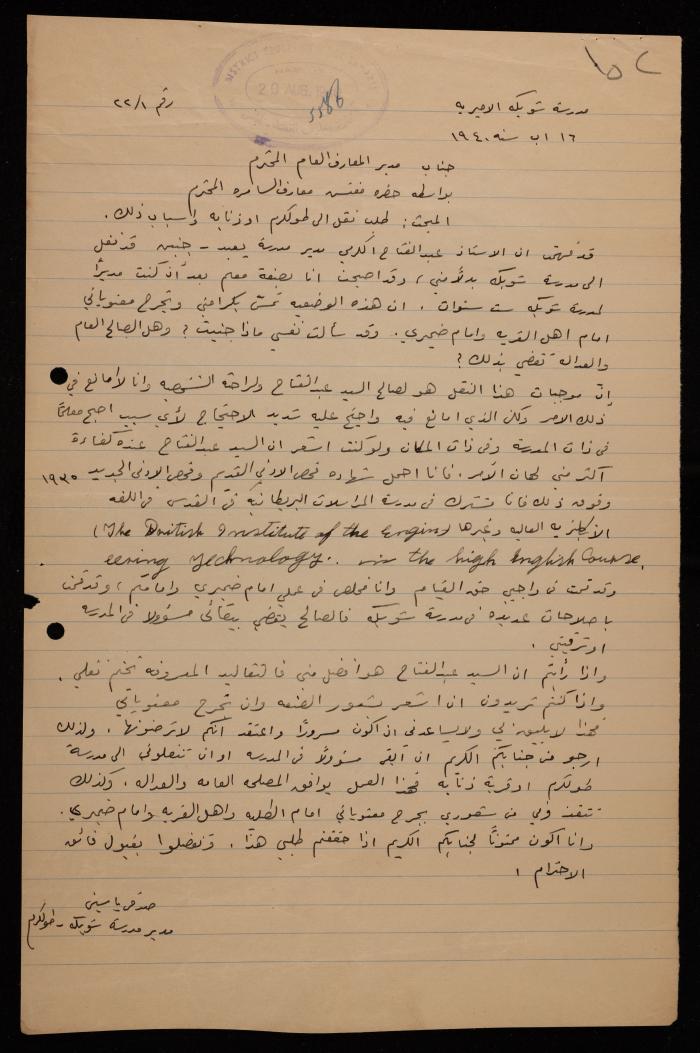 مدرسة شويكه الاميريه
رقم ٢٢/١
DISTRICT
20 AUG.
5586
١٦ اب سنه ١٩٤٠
جناب مدير المعارف العام المحترم
بواسطه حضره مفتش معارف السامره المحترم
المبحث: طلب نقل الى طولكرم او ذنابه واسباب ذلك.
قد فهمت ان الاستاذ عبد الفتاح الكرمي مدير مدرسة يعبد - جنين قد نقل
الى مدرسة شويكه بدلاً مني، وقد اصبحت انا بصفة معلم بعد أن كنت مديراً
لمدرسة شويكه ست سنوات. ان هذه الوضعيه تمسّ بكرامتي وتجرح معنوياتي
امام اهل القريه وامام ضميري. وقد سألت نفسي ماذا جنيت؟ وهل الصالح العام
والعداله تقضي بذلك؟
إنّ موجبات هذا النقل هو لصالح السيد عبد الفتاح ولراحته الشخصيه وانا لا امانع في
ذلك الامر ولكن الذي امانع فيه واحتج عليه شديد الاحتجاج لأي سبب اصبح معلمًا
في ذات المدرسة وفي ذات المكان ولو كنت اشعر ان السيد عبد الفتاح عنده كفاءة
أكثر مني لهان الأمر. فانا احمل شهاده فحص الادنى القديم وفحص الادنى الجديد ١٩٣٥
وفوق ذلك فانا مشترك في مدرسة المراسلات البريطانيه في القدس في اللغه
الانكليزيه العاليه وغيرها (The British Institute of the Engin
eering Technology.. in the high English Course.
وقد قمت في واجبي حق القيام وانا مخلص في عملي امام ضميري وامامكم، وقد قمت
باصلاحات عديده في مدرسة شويكه فالصالح يقضي ببقائي مسؤولا في المدرسه
او ترقيتي.
واذا رأيتم ان السيد عبد الفتاح هو افضل مني فالتقاليد المعروفه تحتم نقلي.
واذا كنتم تريدون ان اشعر بشعور الضعه وان تجرح معنوياتي
فهذا لا يليق بي ولا يساعدني ان اكون مسروراً واعتقد أنكم لا ترضونها. ولذلك
ارجو من جنابكم الكريم ان ابقى مسؤولاً في المدرسه او ان تنقلوني الى مدرسة
طولكرم او قرية ذنابه فهذا العمل يوافق المصلحه العامه والعداله. وكذلك
تنقذوني من شعوري بجرح معنوياتي امام الطلبه واهل القريه وامام ضميري.
وانا اكون ممنونًا لجنابكم الكريم اذا حققتم طلبي هذا. وتفضلوا بقبول فائق
الاحترام ،
صدقي ياسين
مدير مدرسة شويكه - طولكرم